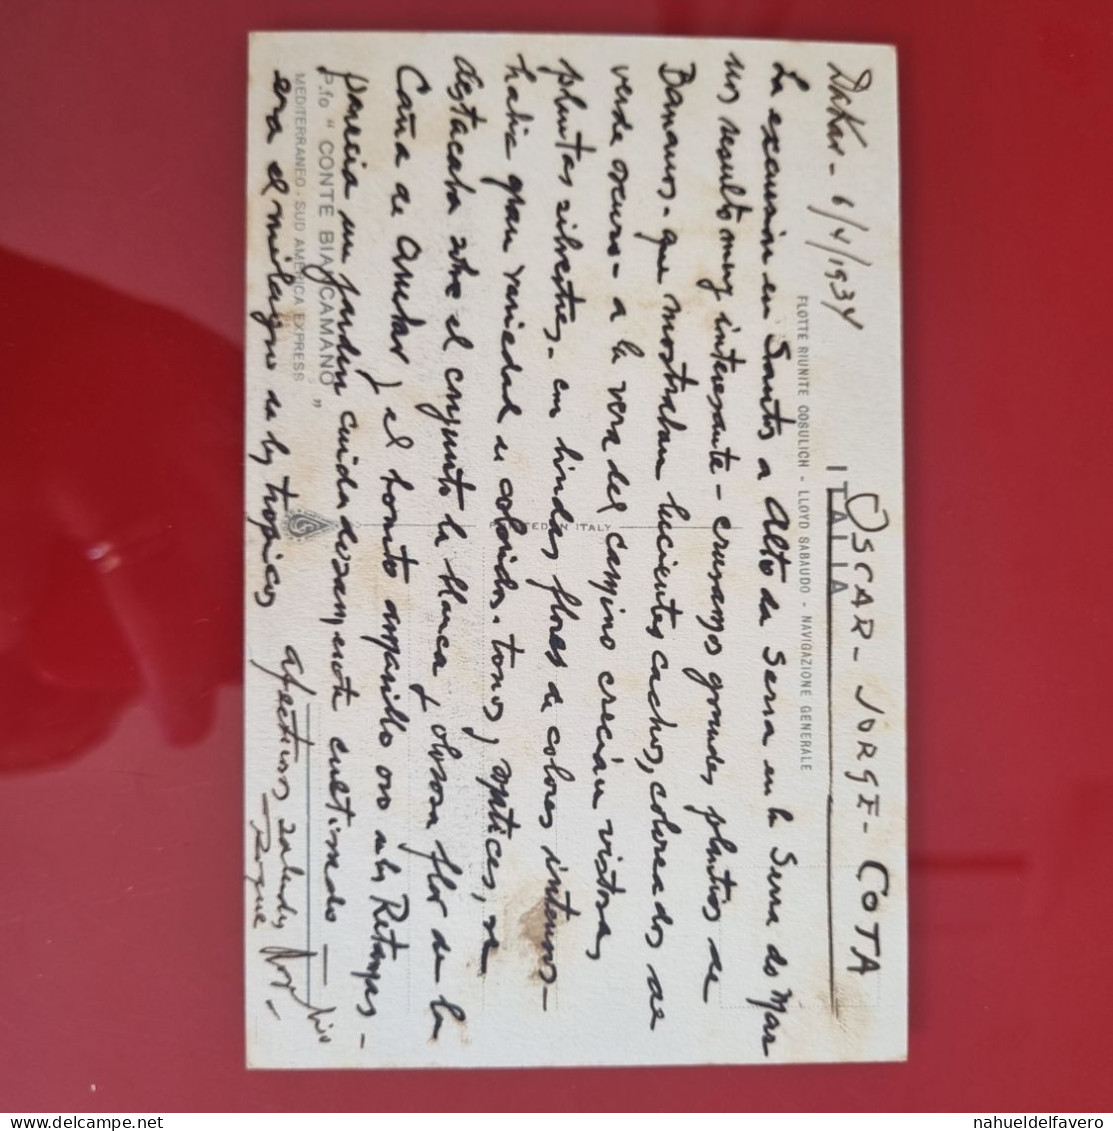 Dakar - 6/4/1934
OSCAR - JORGE - COTA
ITALIA
FLOTTE RIUNITE COSULICH - LLOYD SABAUDO - NAVIGAZIONE GENERALE
La excursion en Santos a Alto da Serra en la Serra do Mar
nos resulto muy interesante - cruzamos grandes plantios de
Bananos - que mostraban lucientes cachos, coloreados de
verde oscuro - a la vera del camino crecian vistosas
plantas silvestres - con lindas flores de colores intensos -
habia gran variedad de coloridos, tonos y
destacaba sobre el conjunto la blanca y flor de la
Caña de Ambar y el bonito amarillo oro de las Retamas -
parecia un jardin cuidadosamente cultivado -
era el milagro de los tropicos
afectuosos saludos
Roque
PRINTED IN ITALY
P.fo "CONTE BIANCAMANO"
MEDITERRANEO - SUD AMERICA EXPRESS
nahueldelfavero